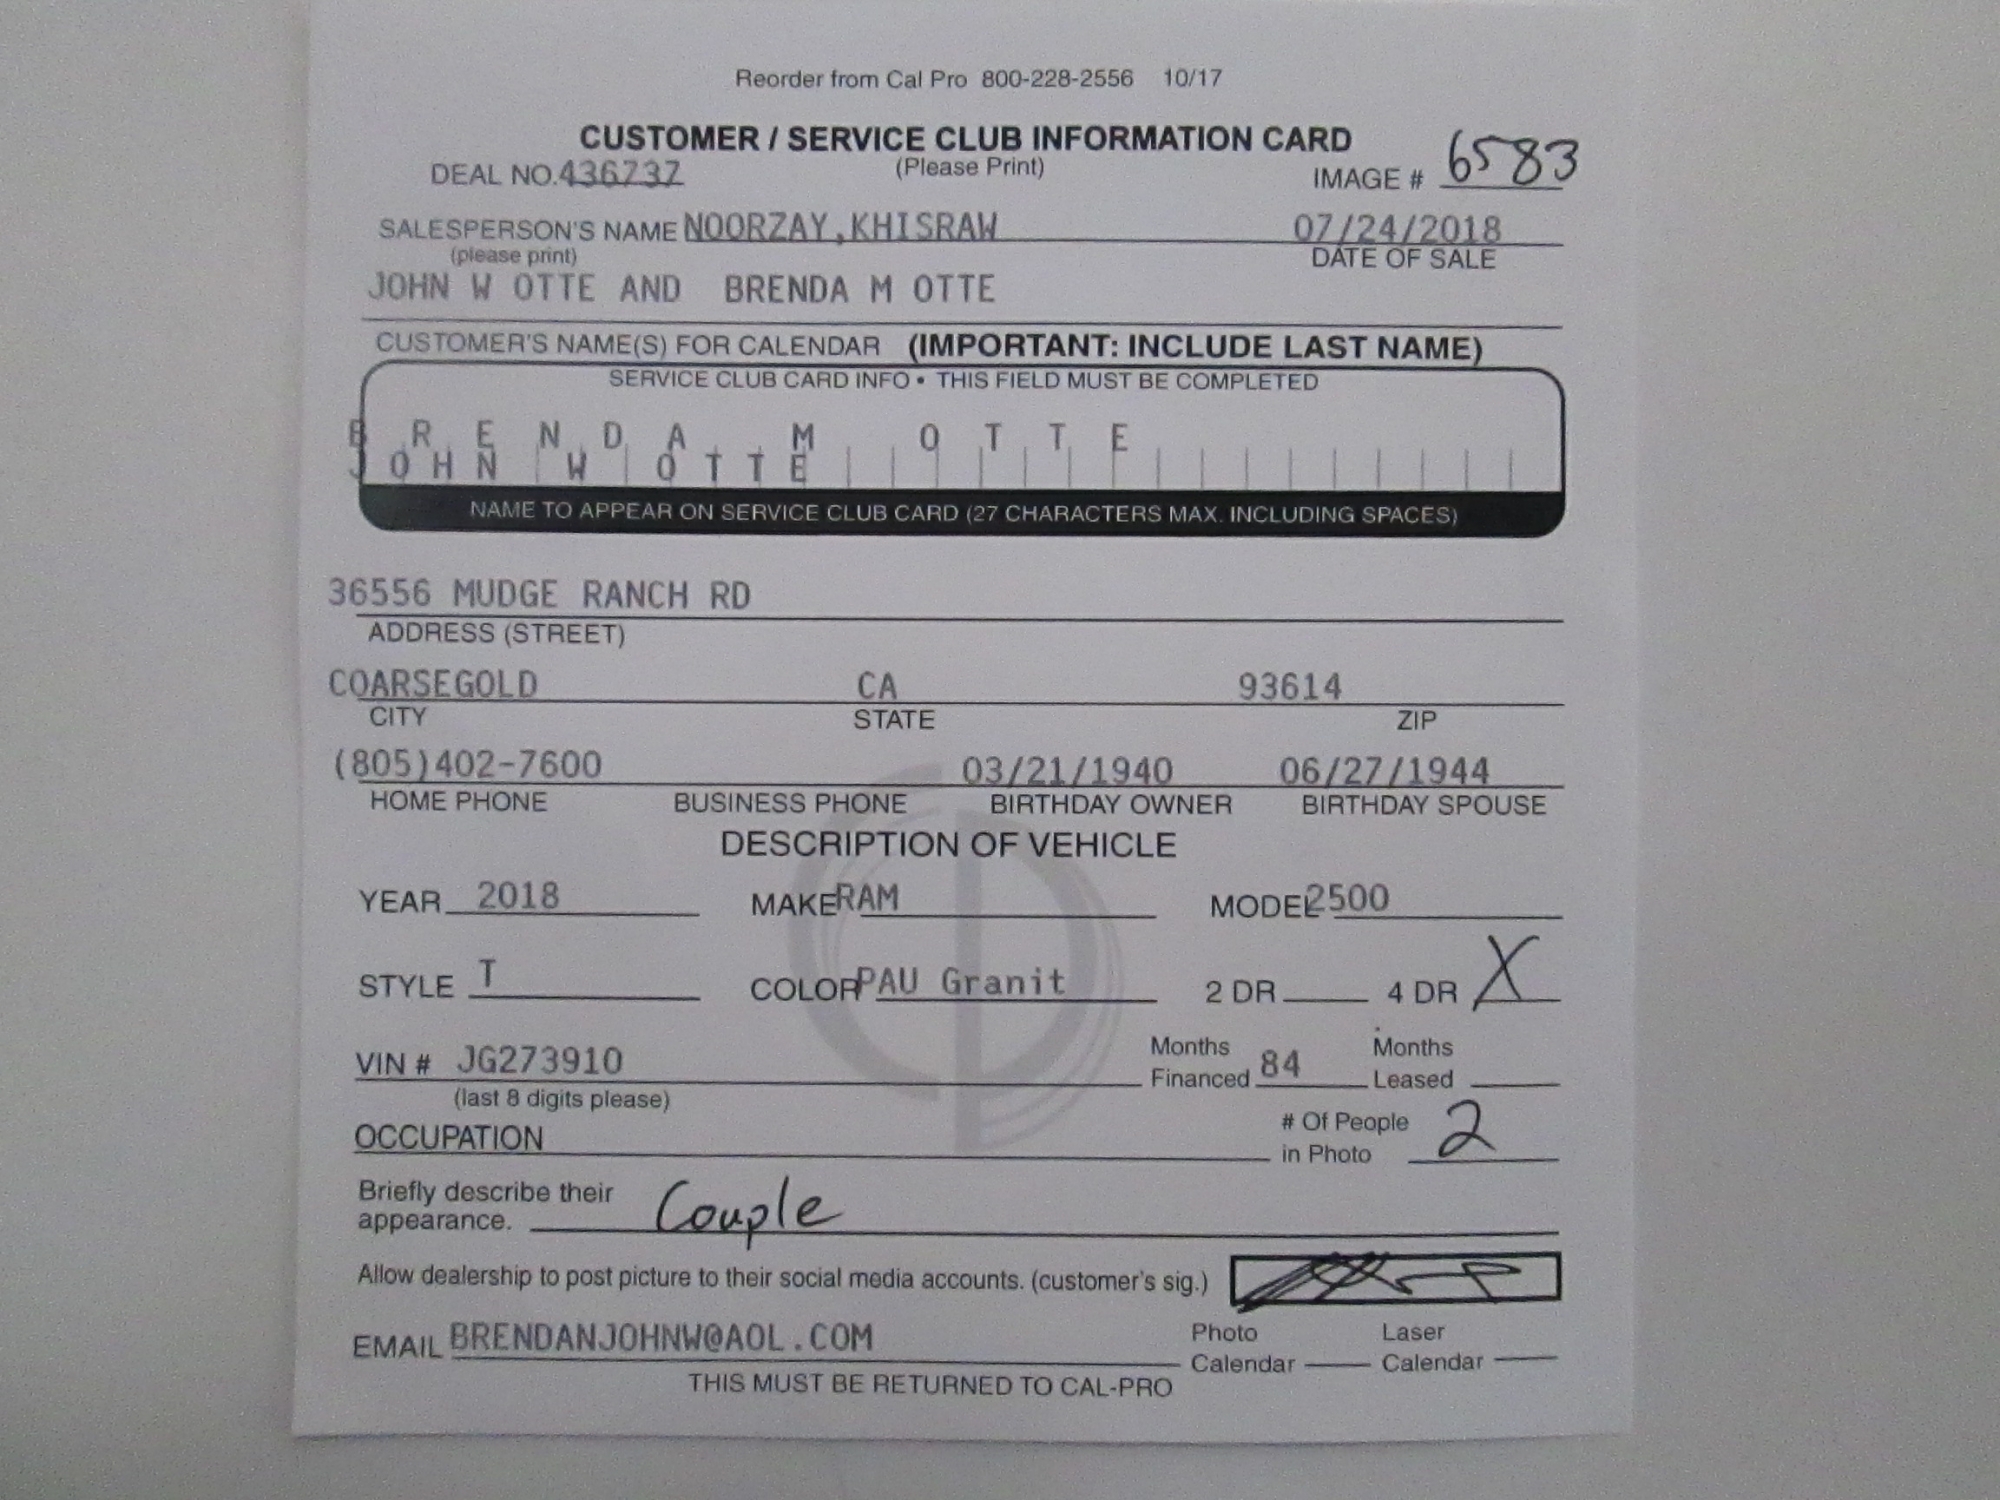 Reorder from Cal Pro 800-228-2556 10/17
CUSTOMER / SERVICE CLUB INFORMATION CARD
DEAL NO.436737 (Please Print) IMAGE # 6583
SALESPERSON'S NAME NOORZAY,KHISRAW 07/24/2018
(please print) DATE OF SALE
JOHN W OTTE AND BRENDA M OTTE
CUSTOMER'S NAME(S) FOR CALENDAR (IMPORTANT: INCLUDE LAST NAME)
SERVICE CLUB CARD INFO • THIS FIELD MUST BE COMPLETED
BRENDA M OTTE
JOHN W OTTE
NAME TO APPEAR ON SERVICE CLUB CARD (27 CHARACTERS MAX. INCLUDING SPACES)
36556 MUDGE RANCH RD
ADDRESS (STREET)
COARSEGOLD CA 93614
CITY STATE ZIP
(805)402-7600 03/21/1940 06/27/1944
HOME PHONE BUSINESS PHONE BIRTHDAY OWNER BIRTHDAY SPOUSE
DESCRIPTION OF VEHICLE
YEAR 2018 MAKE RAM MODEL 2500
STYLE T COLOR PAU Granit 2 DR 4 DR X
VIN # JG273910 Months Financed 84 Months Leased
(last 8 digits please)
OCCUPATION # Of People in Photo 2
Briefly describe their appearance. Couple
Allow dealership to post picture to their social media accounts. (customer's sig.)
EMAIL BRENDANJOHNW@AOL.COM Photo Calendar Laser Calendar
THIS MUST BE RETURNED TO CAL-PRO